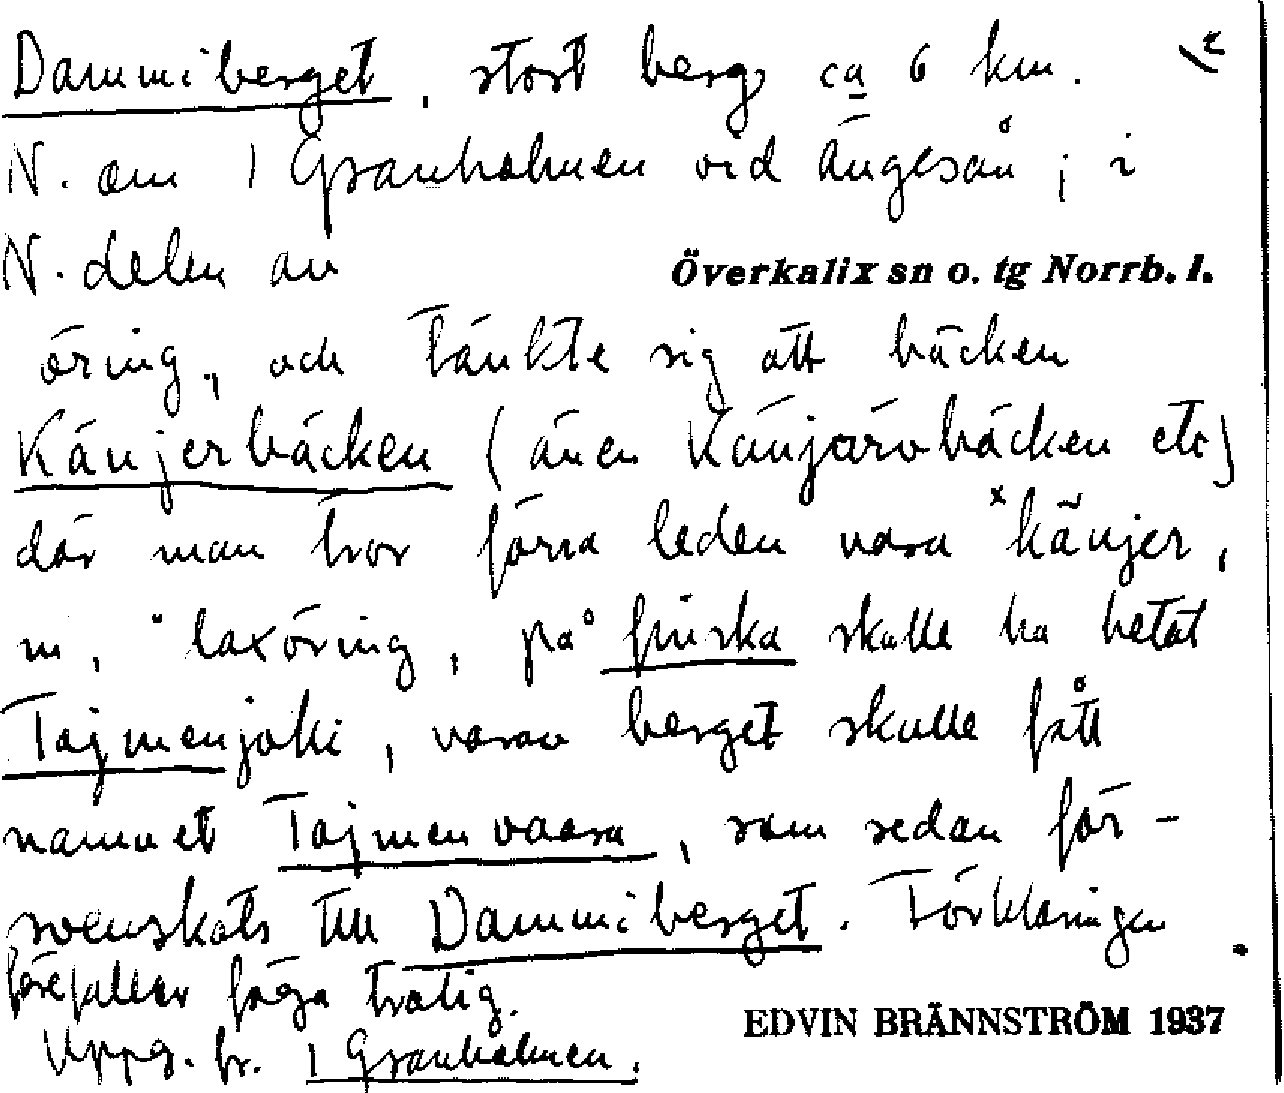 Dammiberget, stort berg ca 6 km.
N. om 1 Granholmen vid Ängesån; i
N. delen av
Överkalix sn o. tg Norrb. l.
öring", och tänkte sig att bäcken
Känjerbäcken (även Känjärvbäcken etc)
där man tror förra leden vara *känjer,
m, "laxöring, på finska skulle ha hetat
Tajmenjoki, varav berget skulle fått
namnet Tajmenvaara, som sedan för-
svenskats till Dammiberget. Förklaringen
förefaller föga trolig.
EDVIN BRÄNNSTRÖM 1937
Uppg. fr. 1 Granholmen.